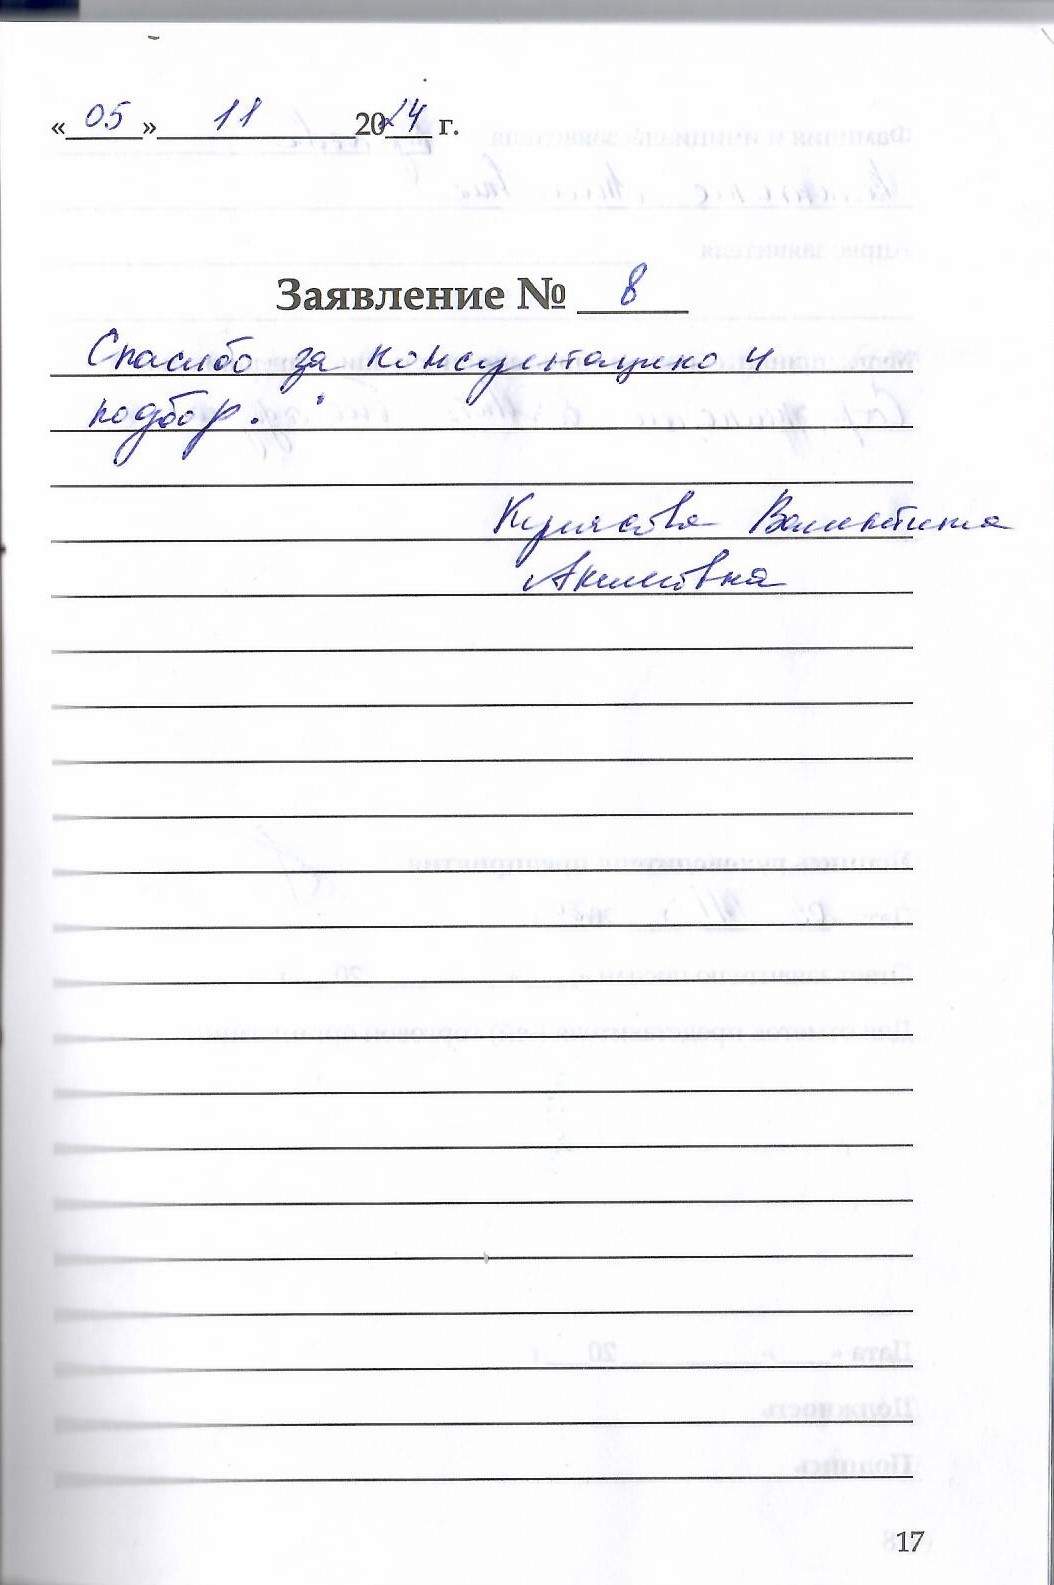 «05» 11 2024 г.
Заявление № 8
Спасибо за консультацию и
подбор.
Валентина
Акимовна
17